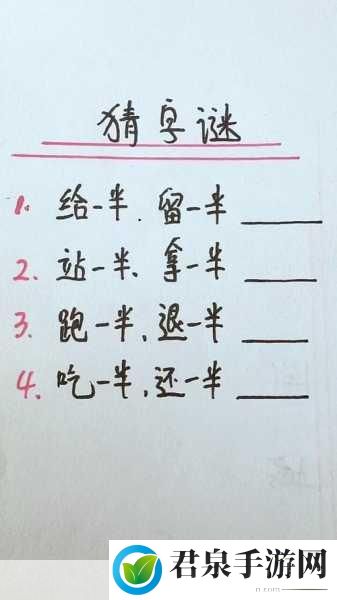 猜字谜
1. 给一半.留一半
2. 站一半、拿一半
3. 跑一半、退一半
4. 吃一半,还一半
君泉手游网